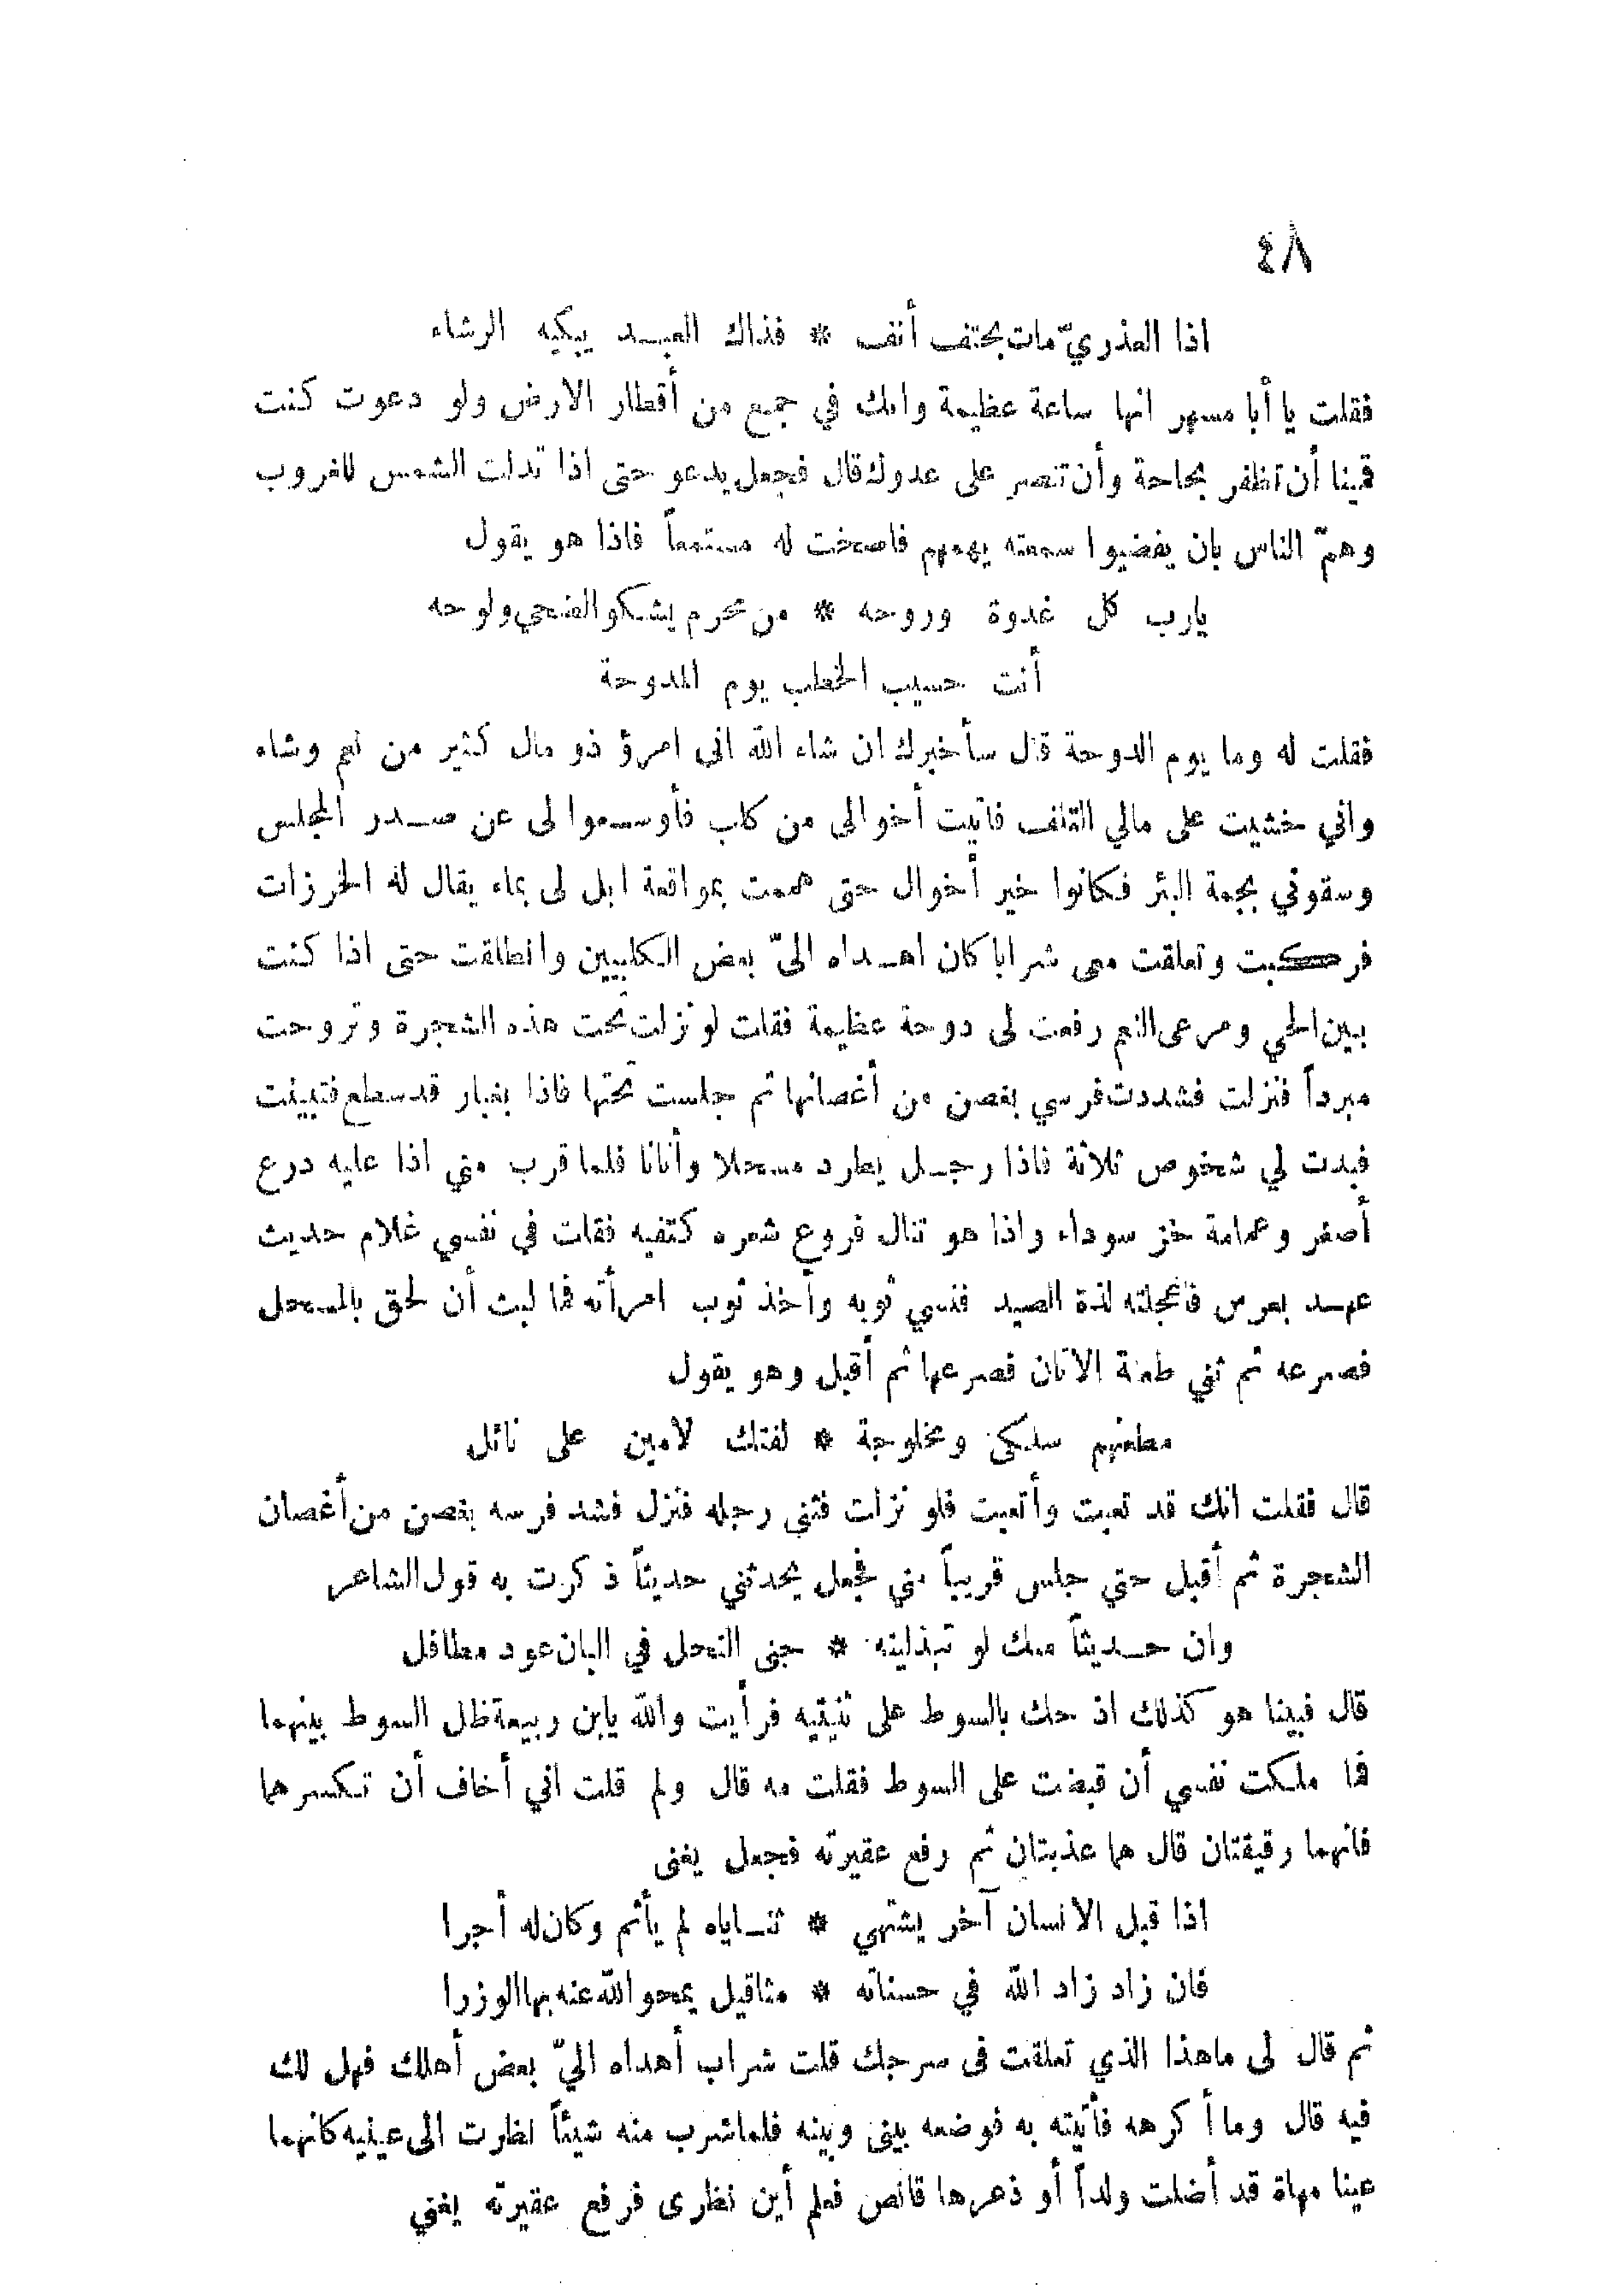 ٤٨
اذا العذريّ مات بحتف أنف * فذاك العبد يبكيه الرشاء
فقلت يا أبا مسهر انها ساعة عظيمة وانك في جمع من أقطار الارض ولو دعوت كنت
قمينا أن تظفر بحاجة وأن تنصر على عدوك قال فجعل يدعو حتى اذا تدلت الشمس للغروب
وهمّ الناس بان يفضيوا سمعته يهمهم فاصخت له مستمعاً فاذا هو يقول
يارب كل غدوة وروحه * من محرم يشكو الضحي ولوحه
أنت حسيب الخطب يوم الدوحة
فقلت له وما يوم الدوحة قال سأخبرك ان شاء الله انى امرؤ ذو مال كثير من نعم وشاه
واني خشيت على مالي التلف فاتيت أخوالى من كلب فأوسعوا لى عن صدر المجلس
وسقوني بجمة البئر فكانوا خير أخوال حتى هممت بمواقعة ابل لى بماء يقال له الخرزات
فركبت وتعلقت معى شرابا كان اهداه الىّ بعض الكلبيين وانطلقت حتى اذا كنت
ببين الحي ومرعى النعم رفعت لى دوحة عظيمة فقلت لو نزلت تحت هذه الشجرة وتروحت
مبرداً فنزلت فشددت فرسي بغصن من أغصانها ثم جلست تحتها فاذا بغبار قد سطع فتبينت
فبدت لي شخوص ثلاثة فاذا رجل يطارد مسحلا وأتانا فلما قرب مني اذا عليه درع
أصفر وعمامة خز سوداء واذا هو تنال فروع شعره كتفيه فقلت في نفسي غلام حديث
عهد بعرس فاعجلته لذة الصيد فنسي ثوبه وأخذ ثوب امرأته فما لبث أن لحق بالمسحل
فصرعه ثم ثني طعنة الاتان فصرعها ثم أقبل وهو يقول
مطعنهم سلكى ومخلوجة * لفتك لامين على نائل
قال فقلت انك قد تعبت وأتعبت فلو نزلت فثني رجله فنزل فشد فرسه بغصن من أغصان
الشجرة ثم أقبل حتي جلس قريباً مني فجعل يحدثني حديثاً ذكرت به قول الشاعر
وان حديثاً منك لو تبذلينه * جنى النحل في البان عود مطافل
قال فبينا هو كذلك اذ حك بالسوط على ثنيتيه فرأيت والله يابن ربيعة ظل السوط بينهما
فما ملكت نفسي أن قبضت على السوط فقلت مه قال ولم قلت اني أخاف أن تكسرهما
فانهما رقيقتان قال هما عذبتان ثم رفع عقيرته فجعل يغنى
اذا قبل الانسان آخر يشتهي * ثناياه لم يأثم وكان له أجرا
فان زاد زاد الله في حسناته * مثاقيل يمحو الله عنه بها الوزرا
ثم قال لى ماهذا الذي تعلقت فى سرجك قلت شراب أهداه اليّ بعض أهلك فهل لك
فيه قال وما أكرهه فأتيته به فوضعه بينى وبينه فلما شرب منه شيئاً نظرت الى عينيه كانهما
عينا مهاة قد أضلت ولداً أو ذعرها قانص فعلم أين نظرى فرفع عقيرته يغني